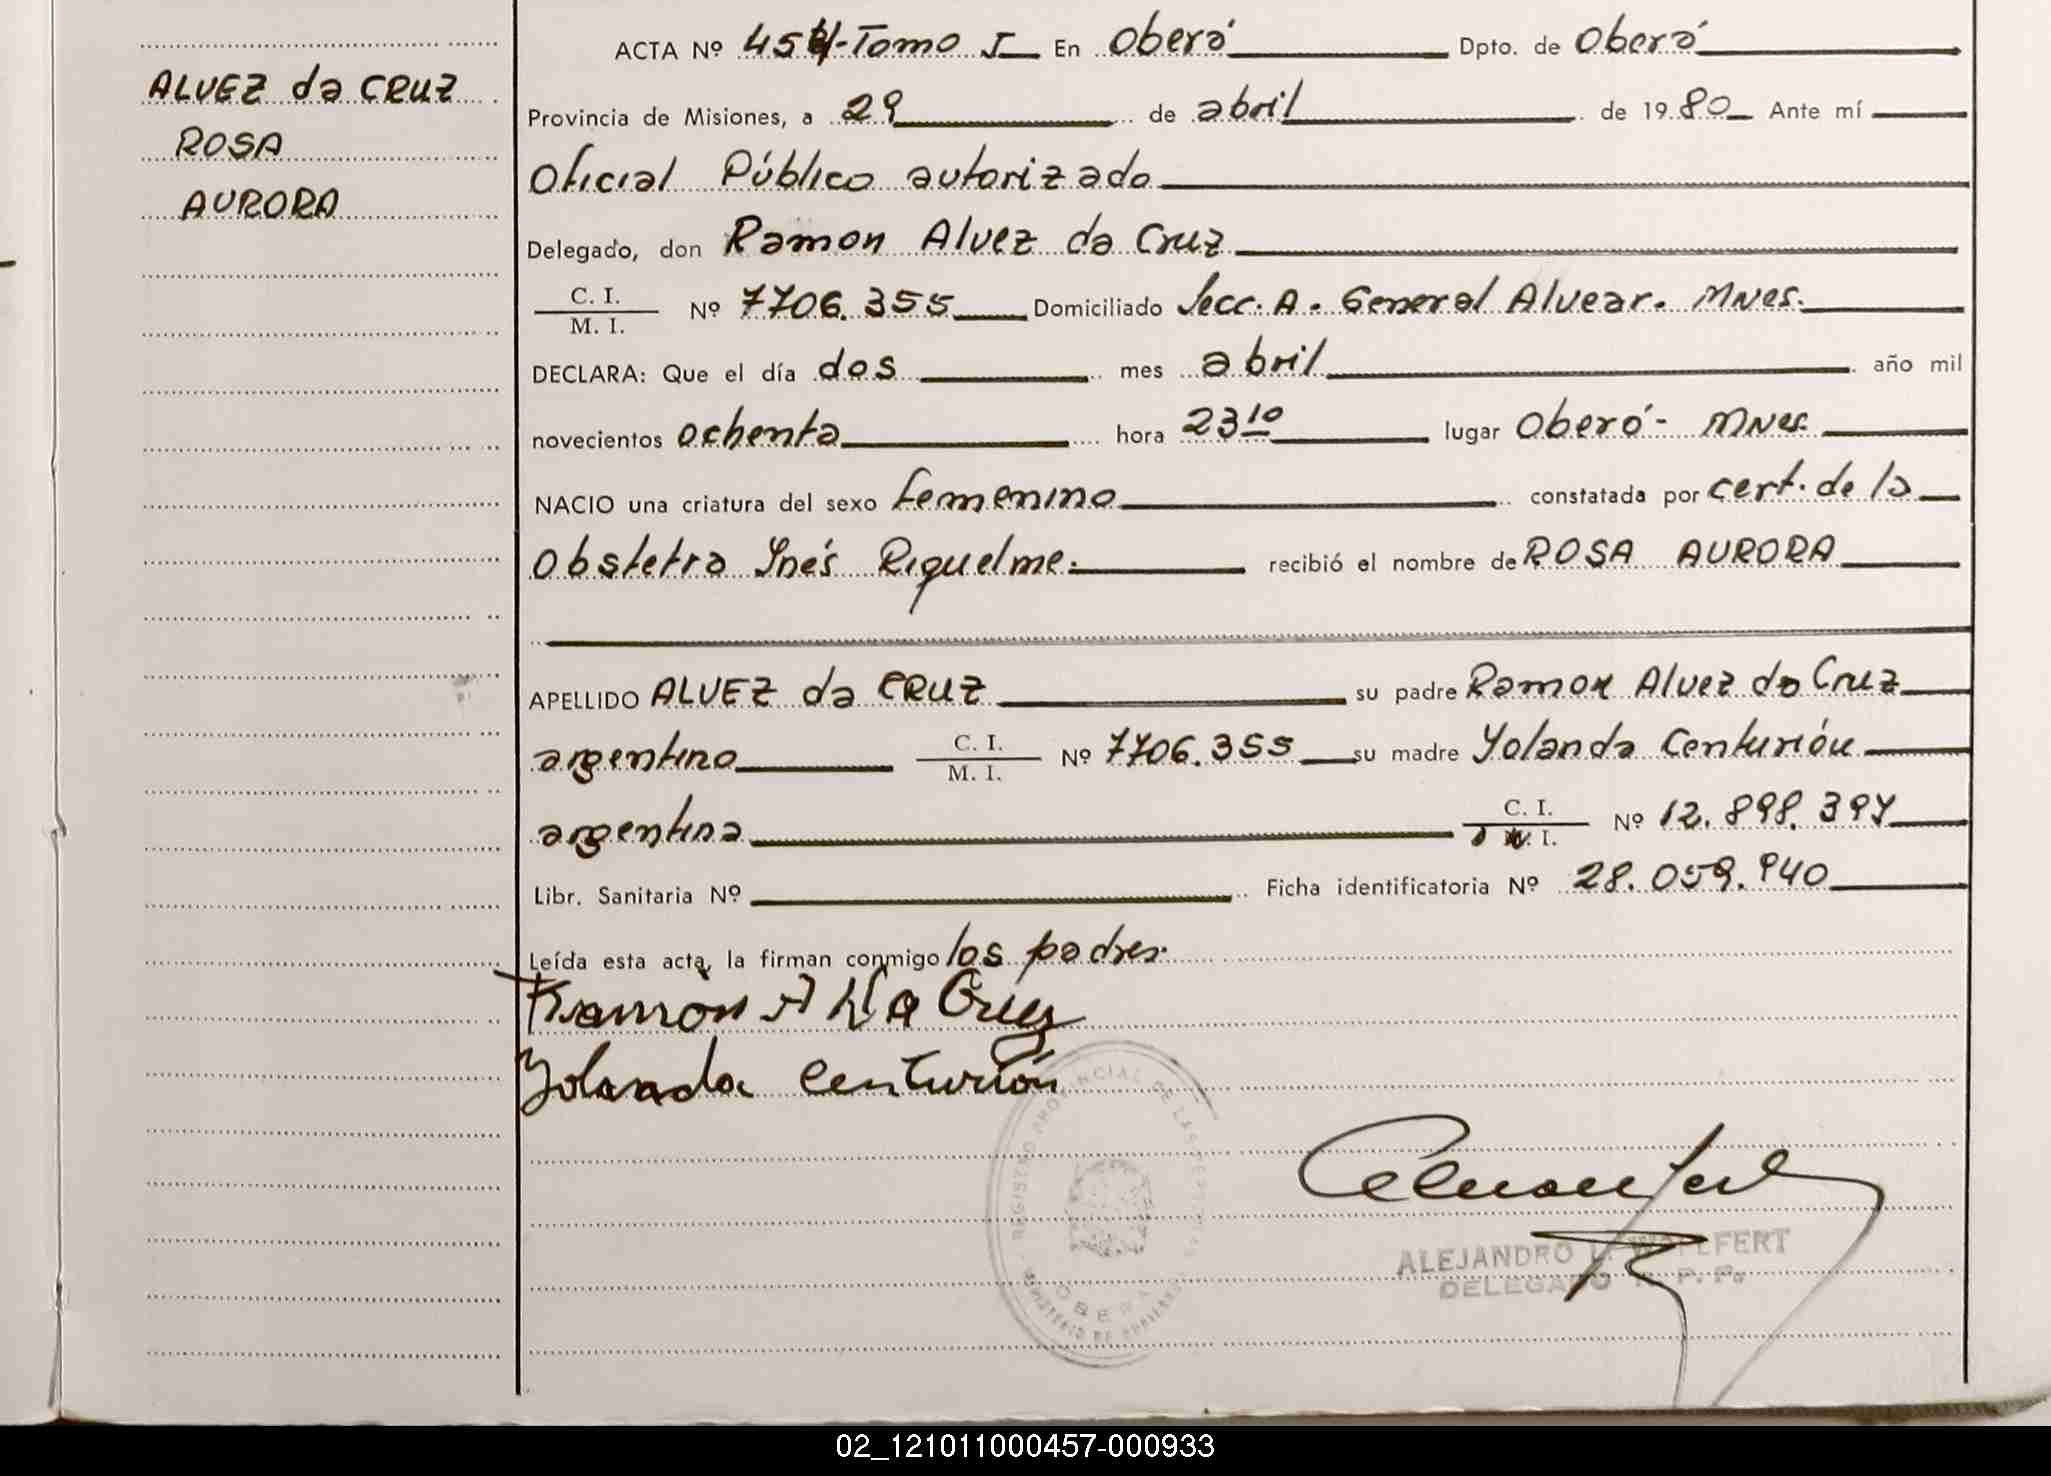 ALVEZ da CRUZ
ROSA
AURORA
ACTA Nº 454-Tomo I En Oberá Dpto. de Oberá
Provincia de Misiones, a 29 de abril de 1980 Ante mí
Oficial Público autorizado
Delegado, don Ramon Alvez da Cruz
C. I.
M. I. Nº 7706.355 Domiciliado Secc. A. General Alvear. Mnes.
DECLARA: Que el día dos mes abril año mil
novecientos ochenta hora 23 10 lugar Oberá - Mnes.
NACIO una criatura del sexo femenino constatada por cert. de la
Obstetra Inés Riquelme. recibió el nombre de ROSA AURORA
APELLIDO ALVEZ da CRUZ su padre Ramon Alvez da Cruz
argentino C. I. M. I. Nº 7706.355 su madre Yolanda Centurión
argentina C. I. Nº 12.898.397
Libr. Sanitaria Nº Ficha identificatoria Nº 28.059.940
Leída esta acta, la firman conmigo los padres.
Ramón A da Cruz
Yolanda Centurión
REGISTRO PROVINCIAL DE LAS PERSONAS
MINISTERIO DE GOBIERNO
OBERA
ALEJANDRO WOLFERT
DELEGADO R. P. P.
02_121011000457-000933